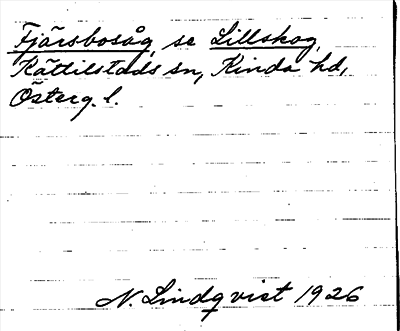 Fjärsbosåg, se Lillskog,
Kättilstads sn, Kinda hd,
Österg. l.
N. Lindqvist 1926